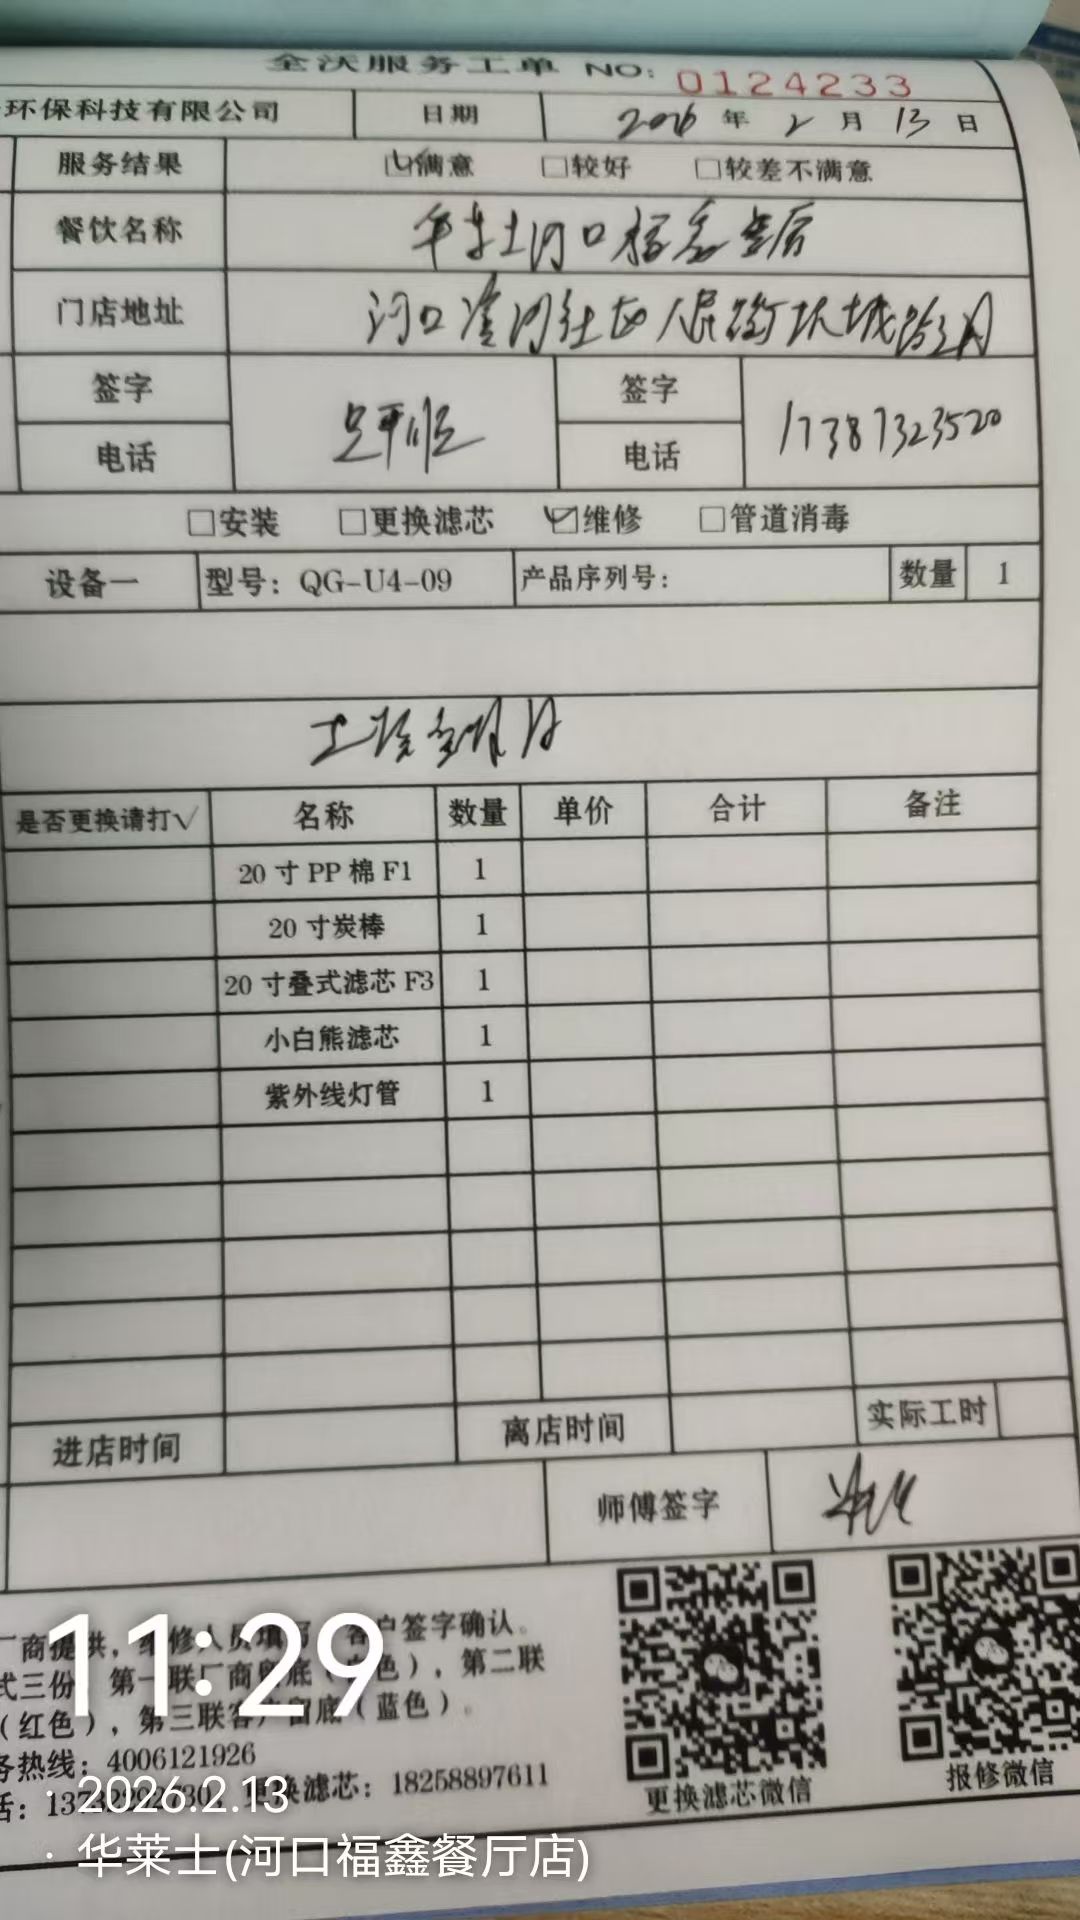 全沃服务工单 NO: 0124233
环保科技有限公司 日期 2026 年 2 月 13 日
服务结果 ☑满意 □较好 □较差不满意
餐饮名称 华莱士河口福鑫餐厅
门店地址 河口 社区人民路
签字 签字
电话 电话 17387323520
□安装 □更换滤芯 ☑维修 □管道消毒
设备一 型号：QG-U4-09 产品序列号： 数量 1
是否更换请打√ 名称 数量 单价 合计 备注
20寸PP棉F1 1
20寸炭棒 1
20寸叠式滤芯F3 1
小白熊滤芯 1
紫外线灯管 1
进店时间 离店时间 实际工时
师傅签字
厂商提供，维修人员填写，客户签字确认。
式三份，第一联厂商留底（白色），第二联
（红色），第三联客户留底（蓝色）。
务热线：4006121926
话： 更换滤芯：18258897611
更换滤芯微信 报修微信
11:29
· 2026.2.13
· 华莱士(河口福鑫餐厅店)